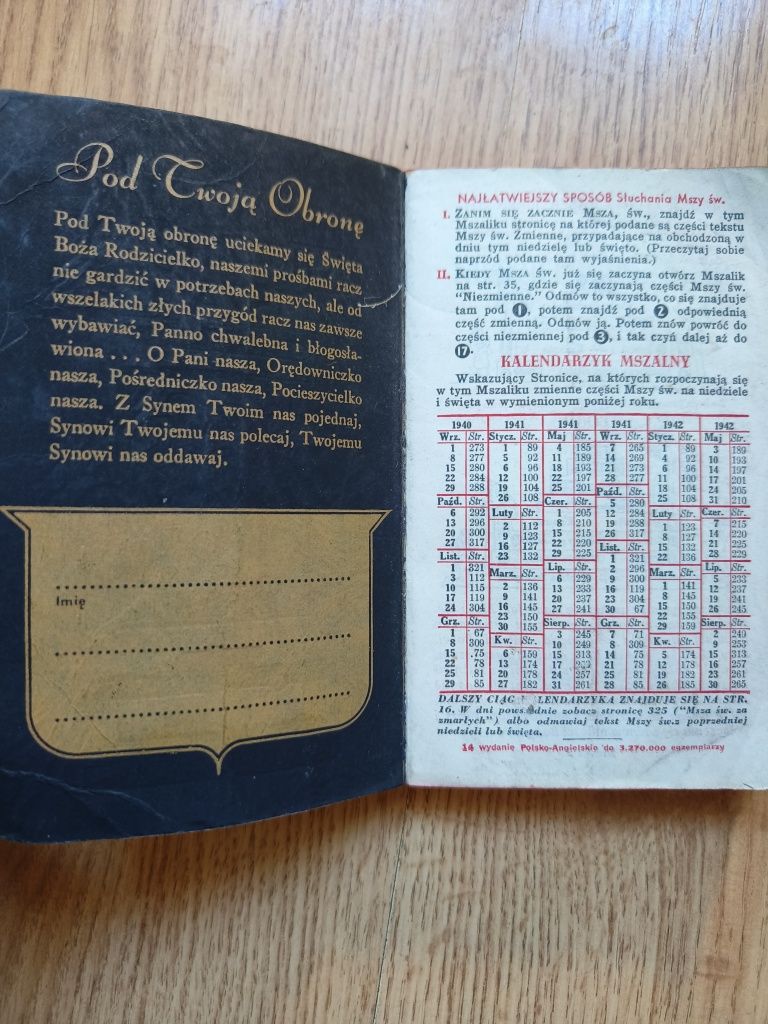 Pod Twoją Obronę
Pod Twoją obronę uciekamy się Święta
Boża Rodzicielko, naszemi prośbami racz
nie gardzić w potrzebach naszych, ale od
wszelakich złych przygód racz nas zawsze
wybawiać, Panno chwalebna i błogosła-
wiona . . . O Pani nasza, Orędowniczko
nasza, Pośredniczko nasza, Pocieszycielko
nasza. Z Synem Twoim nas pojednaj,
Synowi Twojemu nas polecaj, Twojemu
Synowi nas oddawaj.
Imię
NAJŁATWIEJSZY SPOSÓB Słuchania Mszy św.
I. ZANIM SIĘ ZACZNIE MSZA, ŚW., znajdź w tym
Mszaliku stronicę na której podane są części tekstu
Mszy św. Zmienne, przypadające na obchodzoną w
dniu tym niedzielę lub święto. (Przeczytaj sobie
naprzód podane tam wyjaśnienia.)
II. KIEDY MSZA ŚW. już się zaczyna otwórz Mszalik
na str. 35, gdzie się zaczynają części Mszy św.
"Niezmienne." Odmów to wszystko, co się znajduje
tam pod 1, potem znajdź pod 2 odpowiednią
część zmienną. Odmów ją. Potem znów powróć do
części niezmiennej pod 3, i tak czyń dalej aż do
17.
KALENDARZYK MSZALNY
Wskazujący Stronice, na których rozpoczynają się
w tym Mszaliku zmienne części Mszy św. na niedziele
i święta w wymienionym poniżej roku.
1940
Wrz. Str.
1 273
8 277
15 280
22 284
29 288
Paźd. Str.
6 292
13 296
20 300
27 317
List. Str.
1 321
3 112
10 115
17 119
24 304
Grz. Str.
1 67
8 309
15 75
22 78
29 85
1941
Stycz. Str.
1 89
5 92
6 96
12 100
19 104
26 108
Luty Str.
2 112
9 123
16 127
23 132
Marz. Str.
2 136
9 141
16 145
23 150
30 155
Kw. Str.
6 159
13 174
20 178
27 182
1941
Maj Str.
4 185
11 189
18 193
22 197
25 201
Czer. Str.
1 205
8 210
15 215
22 220
29 225
Lip. Str.
6 229
13 233
20 237
27 241
Sierp. Str.
3 245
10 249
15 313
17
24 257
31 261
1941
Wrz. Str.
7 265
14 269
21 273
28 277
Paźd. Str.
5 280
12 284
19 288
26 317
List. Str.
1 321
2 296
9 300
16 119
23 304
30 67
Grz. Str.
7 71
8 309
14 75
21 78
25 81
28 85
1942
Stycz. Str.
1 89
4 92
6 96
11 100
18 104
25 108
Luty Str.
1 123
8 127
15 132
22 136
Marz. Str.
1 141
8 145
15 150
22 155
29 159
Kw. Str.
5 174
12 178
19 182
26 185
1942
Maj Str.
3 189
10 193
14 197
17 201
24 205
31 210
Czer. Str.
7 215
14 220
21 225
28 229
Lip. Str.
5 233
12 237
19 241
26 245
Sierp. Str.
2 249
9 253
15 313
16 257
23 261
30 265
DALSZY CIĄG LENDARZYKA ZNAJDUJE SIĘ NA STR.
16. W dni pows dnie zobacz stronicę 325 ("Msza św. za
zmarłych") albo odmawiaj tekst Mszy św.z poprzedniej
niedzieli lub święta.
14 wydanie Polsko-Angielskie do 3.270.000 egzemplarzy